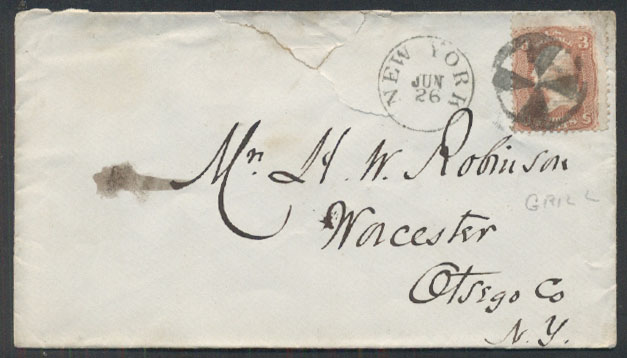 NEW YORK
JUN
26
3
Mr. H. W. Robinson
GRILL
Worcester
Otsego Co
N.Y.